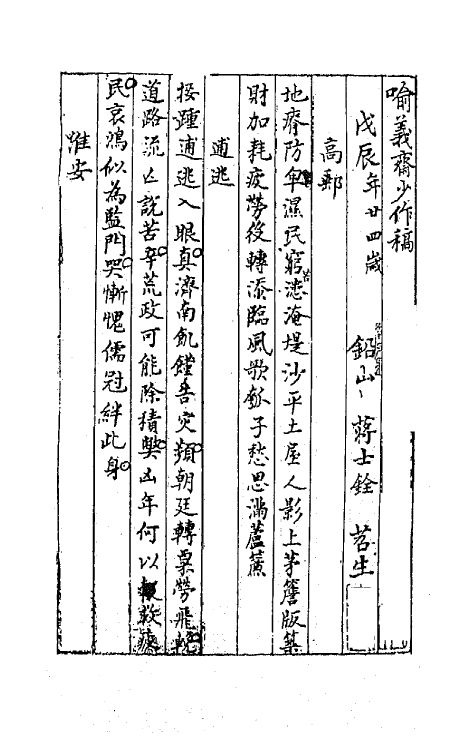 喻義齋少作稿
戊辰年廿四歲 鉛山 蔣士銓 苕生
高郵
地瘠防卑濕民窮苦潦淹堤沙平土屋人影上茅簷版築
財加耗疲勞役轉添臨風歌瓠子愁思滿蘆蒹
逋逃
接踵逋逃入眼真濟南飢饉告灾頻朝廷轉粟勞飛輓
道路流亡說苦辛荒政可能除積弊凶年何以救疲
民哀鴻似為監門哭慚愧儒冠絆此身
淮安